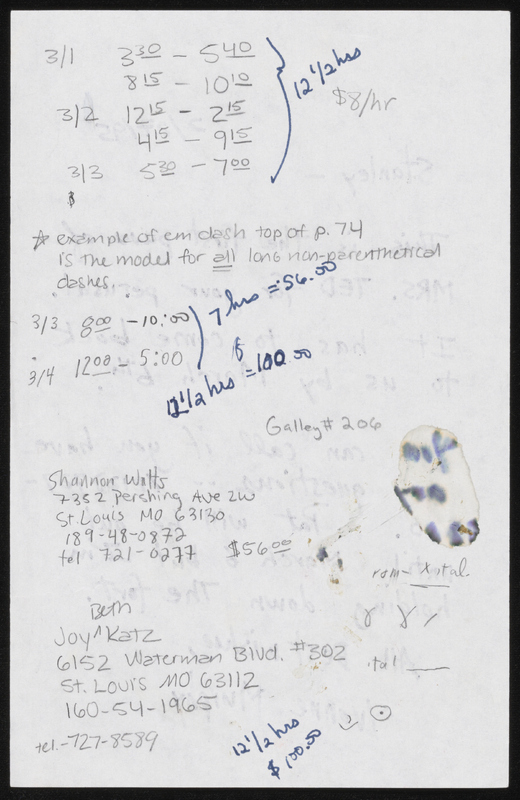 3/1 3³⁰ – 5⁴⁰
8¹⁵ – 10¹⁰
3/2 12¹⁵ – 2¹⁵
4¹⁵ – 9¹⁵
3/3 5³⁰ – 7⁰⁰
12 1/2 hrs
$8/hr
$
☆ example of em dash top of p. 74
is the model for all long non-parenthetical
dashes.
3/3 8⁰⁰ – 10:00
3/4 12⁰⁰ – 5:00
7 hrs = 56.00
12 1/2 hrs = 100.00
Galley # 206
Shannon Watts
7352 Pershing Ave 2W
St. Louis MO 63130
189-48-0872
tel 721-0277 $56⁰⁰
rom ital.
Joy ^Beth Katz
6152 Waterman Blvd. #302
ital
St. Louis MO 63112
160-54-1965
tel.-727-8589
12 1/2 hrs
$100.00